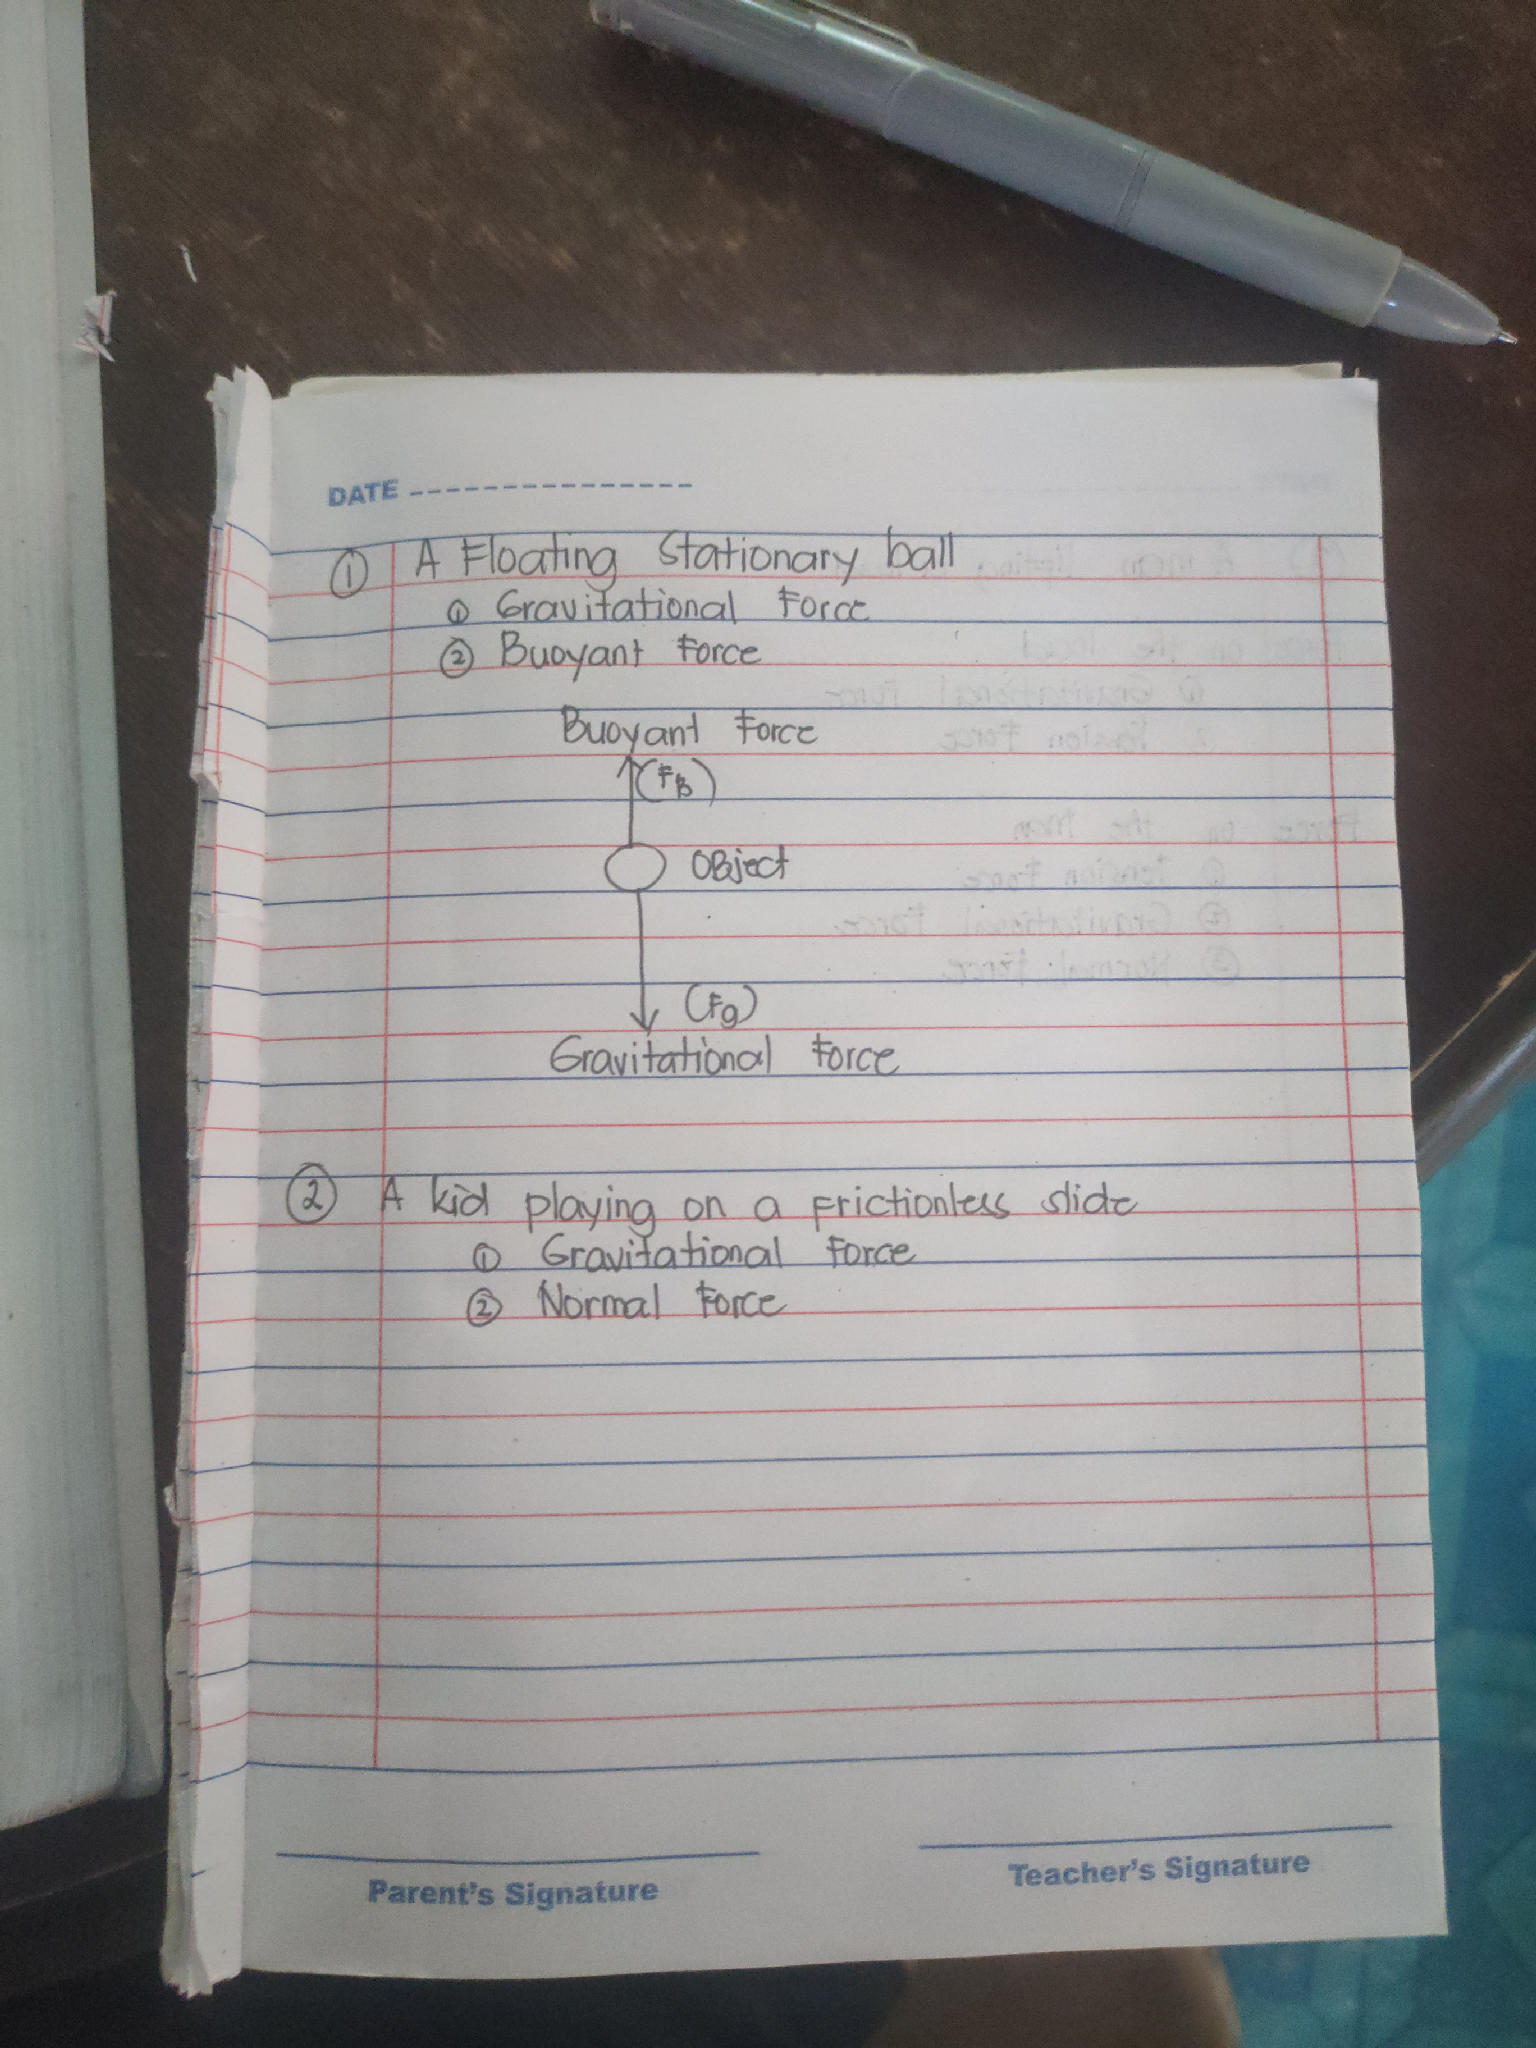 DATE
① A Floating Stationary ball
① Gravitational Force
② Buoyant Force
Buoyant Force
(FB)
OBject
(Fg)
Gravitational Force
② A kid playing on a frictionless slide
① Gravitational Force
② Normal Force
Parent's Signature
Teacher's Signature